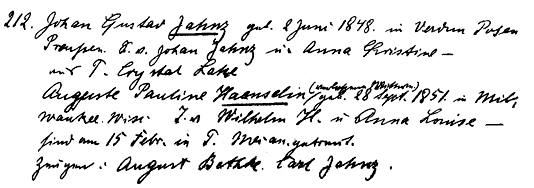 212. Johan Gustav Jahnz geb. 2 Juni 1848. in Verdun Posen
Preussen. S. v. Johan Jahnz u. Anna Christine –
aus T. Crystal Lake
Auguste Pauline Haenselin (verlassene Wittwin) geb. 28 Sept. 1851. in Mil,
waukee. Wisc. T. v. Wilhelm H. u Anna Louise –
sind am 15 Febr. in T. Mecan. getraut.
Zeugen: August Bathke. Carl Jahnz.